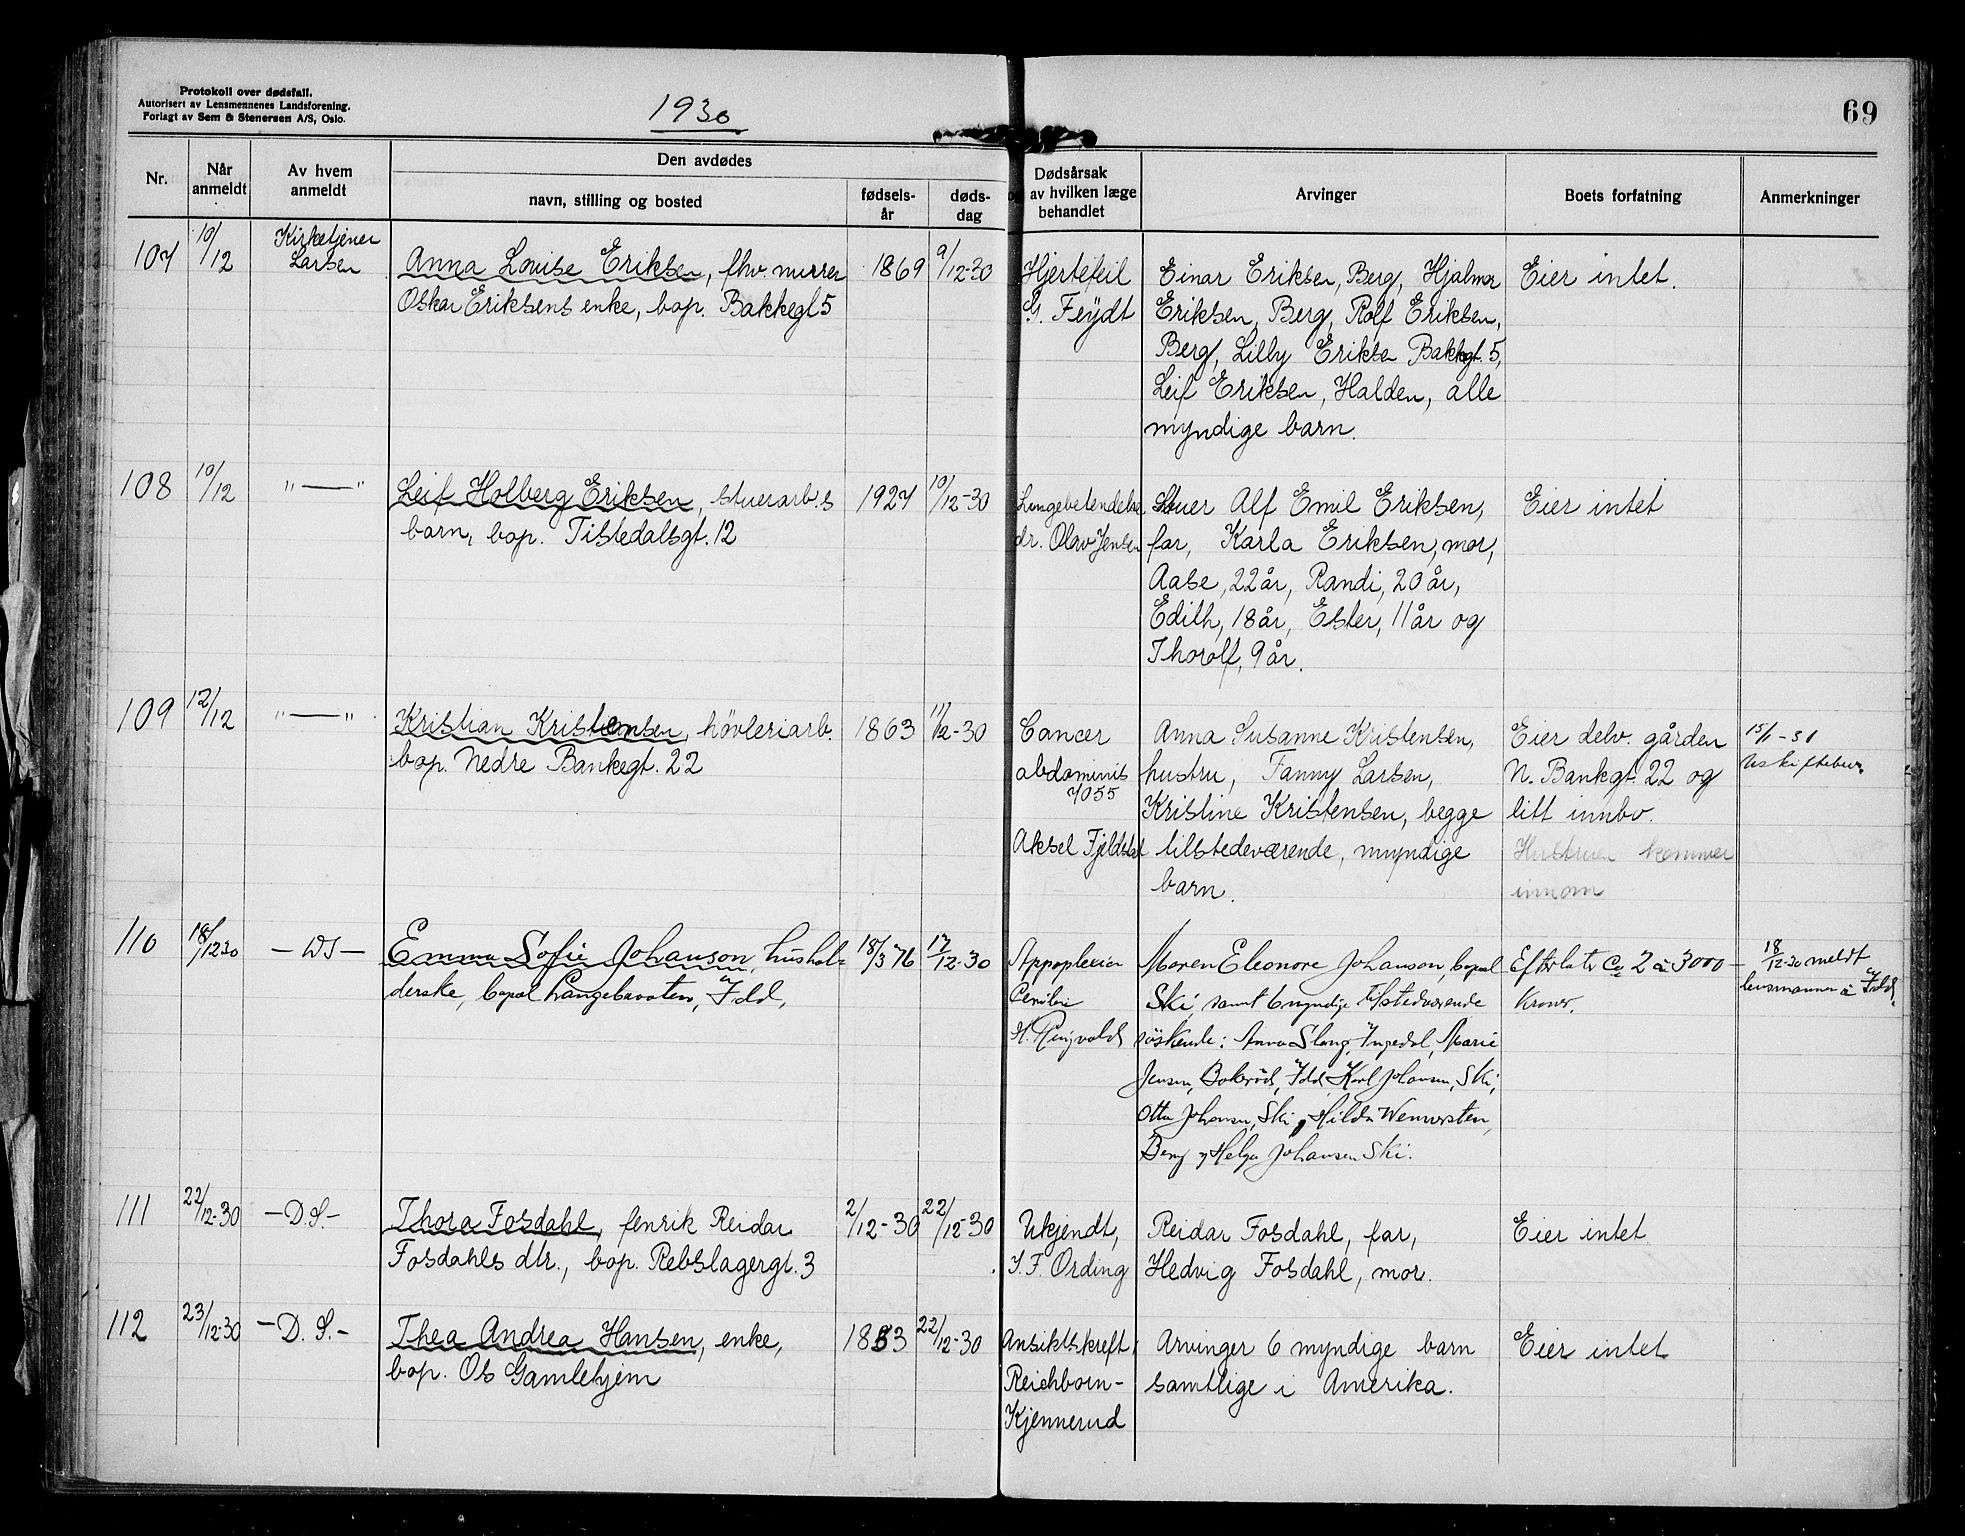 Protokoll over dødsfall.
Autorisert av Lensmennenes Landsforening.
Forlagt av Sem & Stenersen A/S, Oslo.
1930
69
Nr.
Når anmeldt
Av hvem anmeldt
Den avdødes
navn, stilling og bosted
fødsels-år
døds-dag
Dødsårsak
av hvilken læge
behandlet
Arvinger
Boets forfatning
Anmerkninger
107
10/12
Kirketjener
Larsen
Anna Louise Eriksen, fhv. murer
Oskar Eriksens enke, bop. Bakkegt 5
1869
9/12-30
Hjertefeil
G. Feydt
Einar Eriksen, Berg, Hjalmar
Eriksen, Berg, Rolf Eriksen,
Berg, Lilly Eriksen Bakkegt. 5,
Leif Eriksen, Halden, alle
myndige barn.
Eier intet.
108
10/12
"—"
Leif Holberg Eriksen, stuerarb.s
barn, bop. Tistedalsgt. 12
1927
10/12-30
Lungebetendelse
dr. Olav Jensen
Stuer Alf Emil Eriksen,
far, Karla Eriksen, mor,
Aase, 22 år, Randi, 20 år,
Edith, 18 år, Ester, 11 år og
Thorolf, 9 år.
Eier intet
109
12/12
"—"
Kristian Kristensen, hövleriarb.
bop. Nedre Bankegt. 22
1863
11/12-30
Cancer
abdominis
7055
Aksel Fjeldstad
Anna Susanne Kristensen,
hustru, Fanny Larsen,
Kristine Kristensen, begge
tilstedeværende, myndige
barn.
Eier delv. gården
N. Bankgt. 22 og
litt innbo.
Hustruen kommer
innom
15/1-31
Uskiftebev.
110
18/12 30
— DS —
Emma Sofie Johanson, hushol-
derske, bopæl Langebraaten, Idd,
18/3 76
17/12-30
Appoplexia
H. Ringvold
Maren Eleonore Johanson, bopæl
Ski, samt 6 myndige tilstedværende
söskende: Anna Slang, Ingedal, Marie
Jensen, Bakeröd, Idd, Karl Johansen, Ski,
Otto Johansen, Ski, Hilda Wennersten,
Berg og Helga Johansen Ski.
Efterlater Ca 2 à 3000 —
Kroner.
18/12-30 meldt
lensmannen i Idd.
111
22/12-30
— D.S. —
Thora Fosdahl, fenrik Reidar
Fosdahls dtr., bop. Rebslagergt. 3
2/12-30
22/12-30
Ukjendt,
J. F. Ording
Reidar Fosdahl, far,
Hedvig Fosdahl, mor.
Eier intet
112
23/12-30
— D. S. —
Thea Andrea Hansen, enke,
bop. Os Gamlehjem
1853
22/12-30
Ansiktskreft,
Reichborn-
Kjennerud
Arvinger 6 myndige barn
samtlige i Amerika.
Eier intet